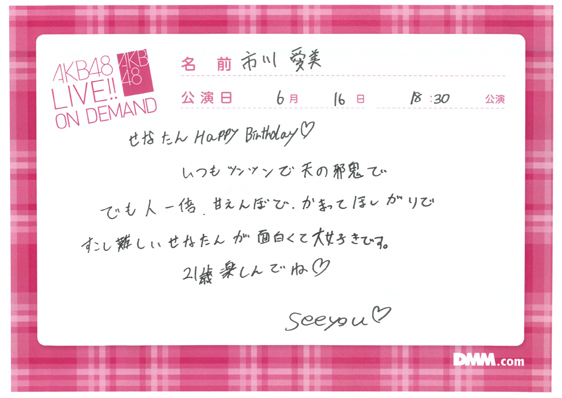 AKB48
LIVE!!
ON DEMAND
AKB
48
名 前 市川 愛美
公演日 6月 16日 18:30 公演
せなたん Happy Birthday♡
いつもツンツンで天の邪鬼で
でも人一倍、甘えんぼで、かまってほしがりで
すこし難しいせなたんが面白くて大好きです。
21歳楽しんでね♡
See you♡
DMM.com